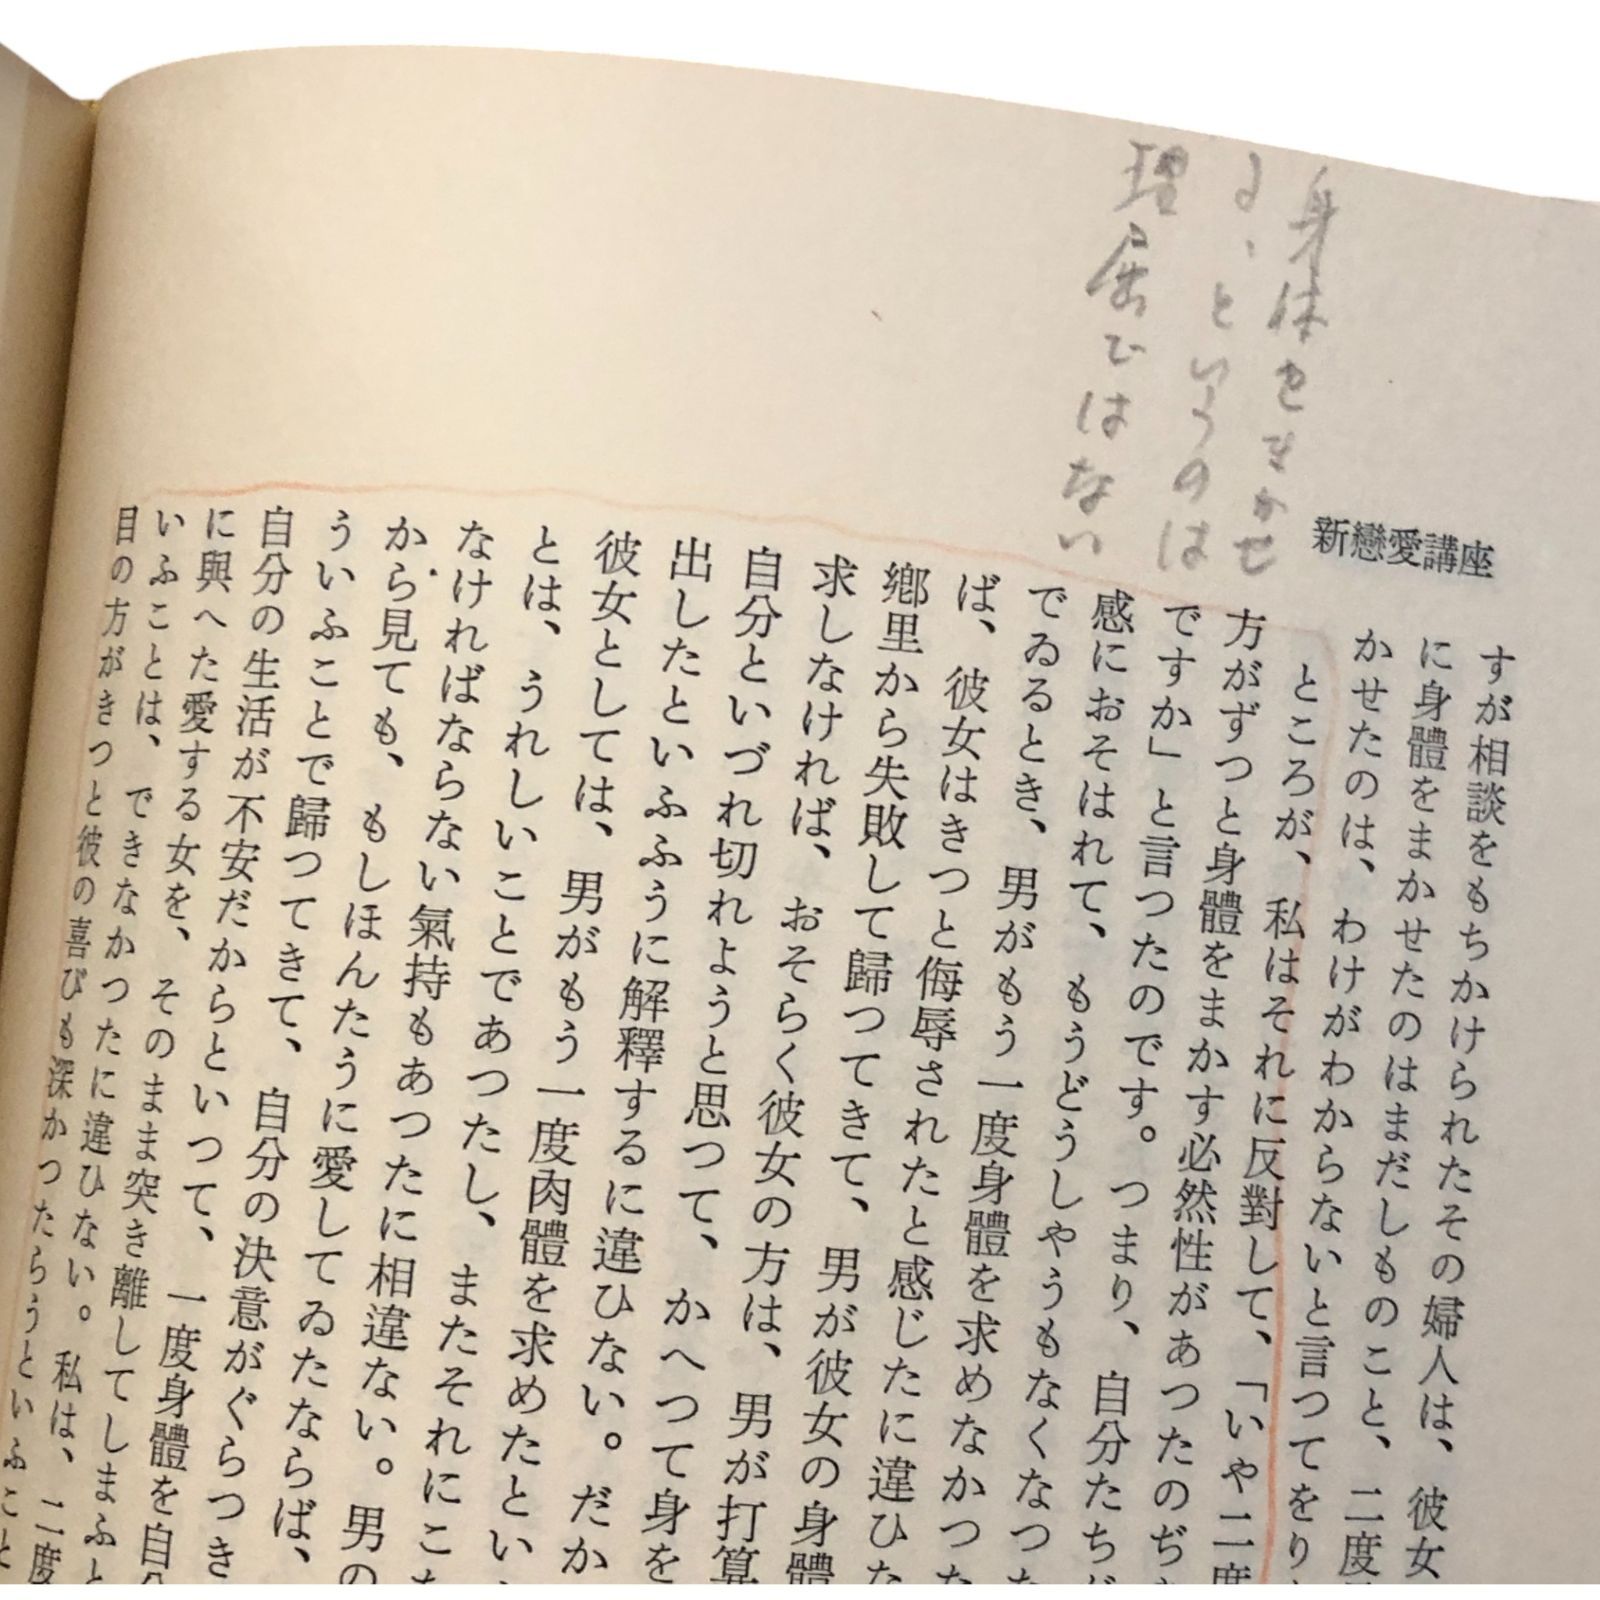 身体をまかせ
る、というのは
理屈ではない
新戀愛講座
すが相談をもちかけられたその婦人は、彼女
に身體をまかせたのはまだしものこと、二度
かせたのは、わけがわからないと言つてをり
ところが、私はそれに反對して、「いや二度
方がずつと身體をまかす必然性があつたのぢ
ですか」と言つたのです。つまり、自分たち
感におそはれて、もうどうしやうもなくなつ
でゐるとき、男がもう一度身體を求めなかつた
ば、彼女はきつと侮辱されたと感じたに違ひ
鄕里から失敗して歸つてきて、男が彼女の身體
求しなければ、おそらく彼女の方は、男が打算
自分といづれ切れようと思つて、かへつて身を
出したといふふうに解釋するに違ひない。だか
彼女としては、男がもう一度肉體を求めたとい
とは、うれしいことであつたし、またそれにこ
なければならない氣持もあつたに相違ない。男の
から見ても、もしほんたうに愛してゐたならば、
ういふことで歸つてきて、自分の決意がぐらつき
自分の生活が不安だからといつて、一度身體を自
に與へた愛する女を、そのまま突き離してしまふ
いふことは、できなかつたに違ひない。私は、二度
目の方がきつと彼の喜びも深かつたらうといふこと